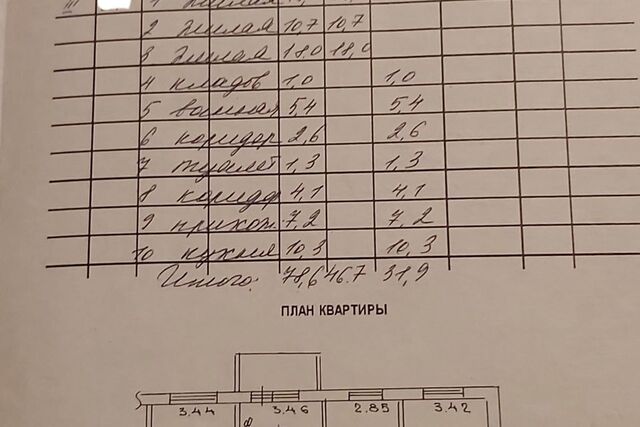 III 1 жилая
2 жилая 10,7 10,7
3 жилая 18,0 18,0
4 кладов 1,0 1,0
5 ванная 5,4 5,4
6 коридор 2,6 2,6
7 туалет 1,3 1,3
8 коридр 4,1 4,1
9 прихож 7,2 7,2
10 кухня 10,3 10,3
Итого: 78,6 46.7 31,9
ПЛАН КВАРТИРЫ
3.44 3.46 2.85 3.42